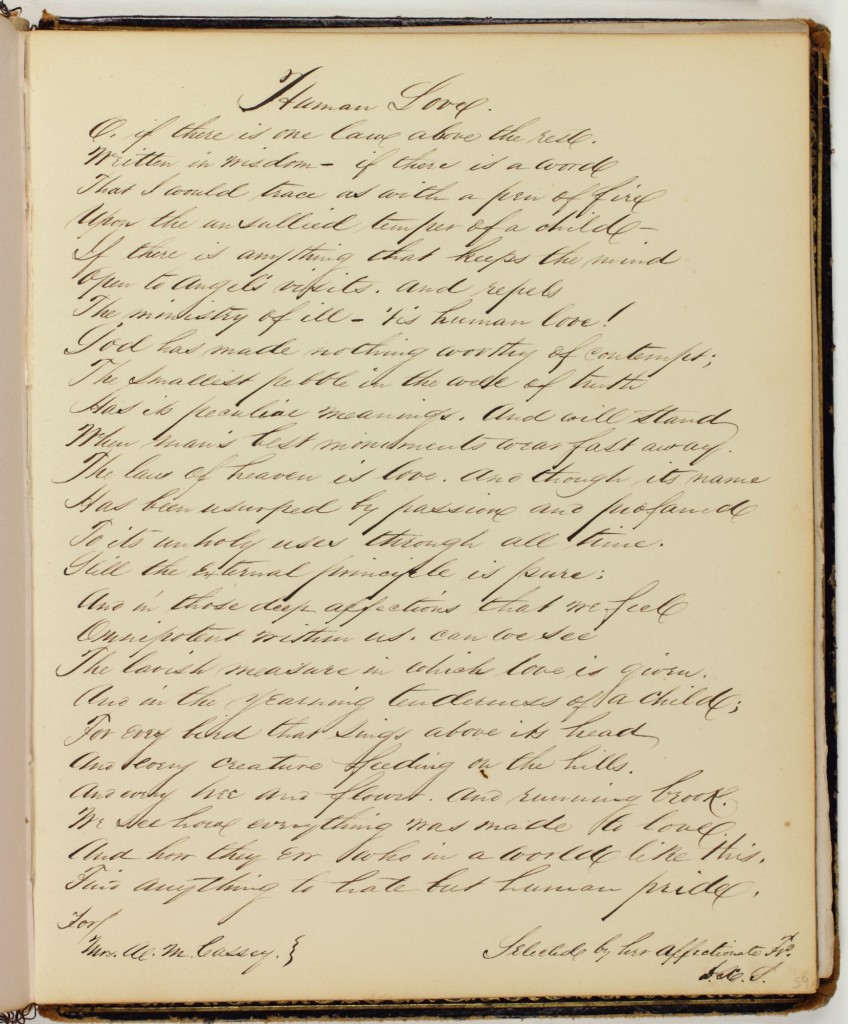 Human Love.
O. if there is one law above the rest.
Written in wisdom – if there is a word
That I would trace as with a pen of fire
Upon the unsullied temper of a child –
If there is anything that keeps the mind
Open to Angel's visits. and repels
The ministry of ill – 'tis human love!
God has made nothing worthy of contempt;
The smallest pebble in the well of truth
Has its peculiar meanings. And will stand
When man's best monuments wear fast away.
The law of heaven is love. And though its name
Has been usurped by passion and profaned
To its unholy uses through all time.
Still the external principle is pure:
And in those deep affections that we feel
Omnipotent within us. can we see
The lavish measure in which love is given.
And in the yearning tenderness of a child;
For every bird that sings above its head
And every creature feeding on the hills.
And every tree and flower. And running brook.
We see how everything was made to love.
And how they err who in a world like this.
Find anything to hate but human pride.
For
Mrs. A. M. Cassey. }
Selected by her affectionate Fr.
S.